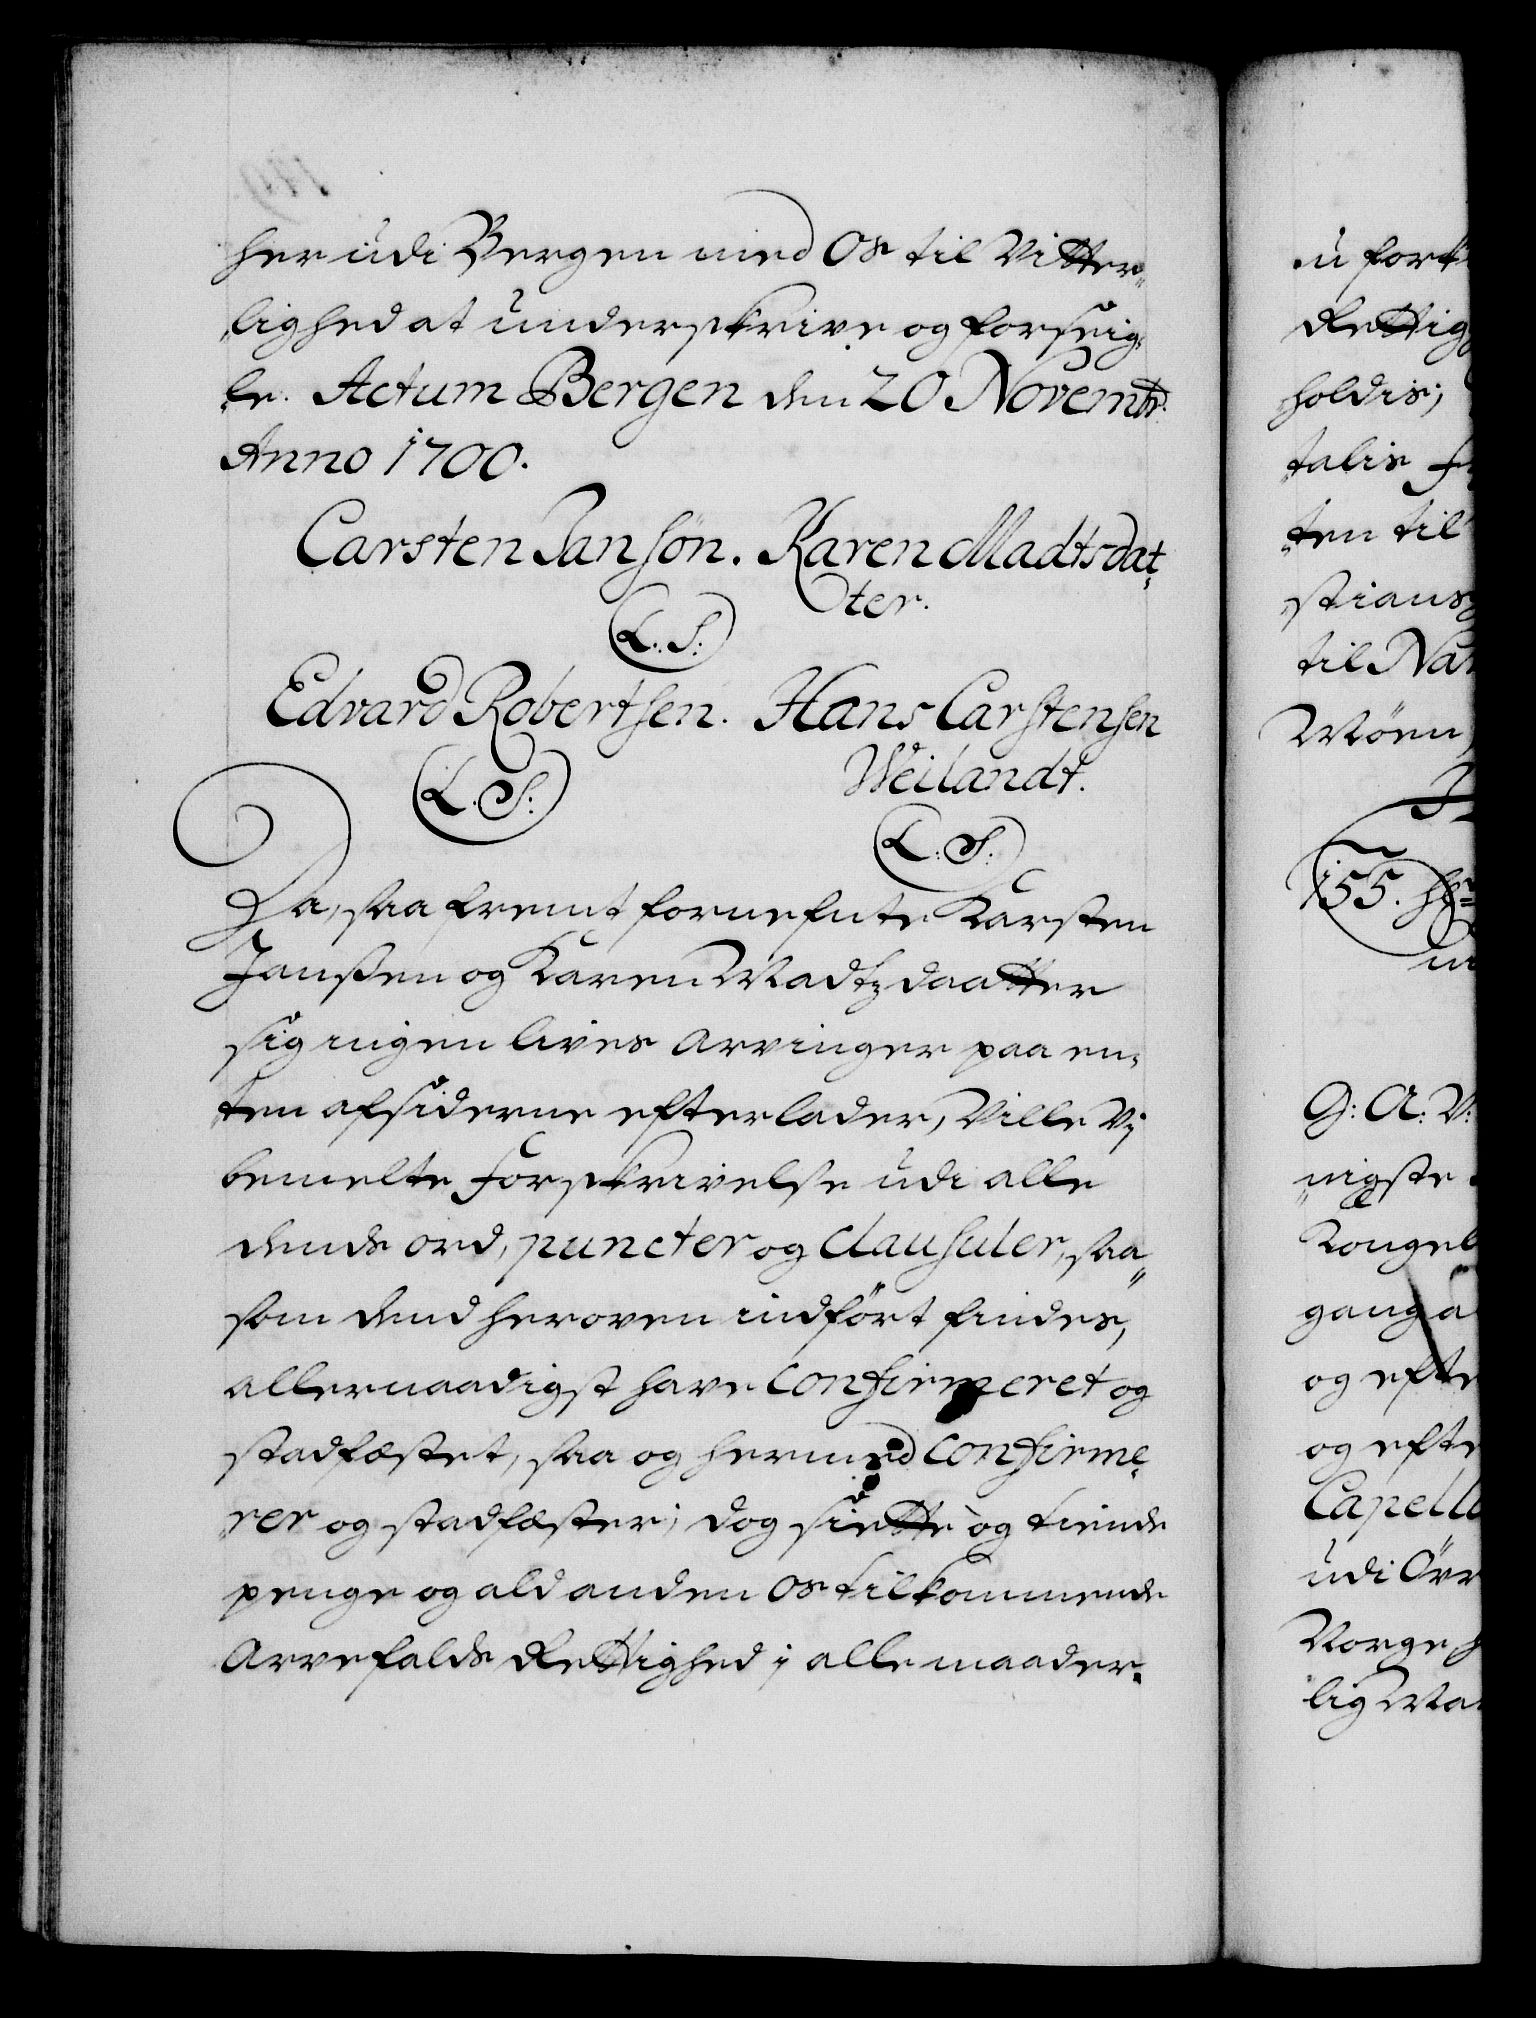 her udi Bergen med Os til Vitter„
„lighed at underskrive og forseig„
„le. Actum Bergen den 20 Novembr.
Anno 1700.
Carsten Jansøn. Karen Madtsdat„
ter.
(L. S:)
Edvard Robertsen. Hans Carstensen
Weilandt.
(L. S:)
(L: S:)
Da, saa fremt fornefnte Karsten
Janßen og Karen Madtzdaatter
sig ingen lives Arvinger paa en„
„ten afsiderne efterlader, Ville Vi
bemelte Forskrivelse udi alle
dends ord, puncter og Clausuler, saa„
som dend heroven indført findes,
allernaadigst have Confirmeret og
stadfæstet, saa og hermed Confirme„
„rer og stadfæster; dog siette og tiende
penge og ald anden Os tilkommende
Arvefalds Rettighed i alle maader„
u for
Rettig
holdis;
talis
„ten til
„stians
til Nat
Møen
155.
G: A: V:
„nigste
Kongel
gang a
og efte
og efte
Capell
udi Ov
Norge,
lig Ma